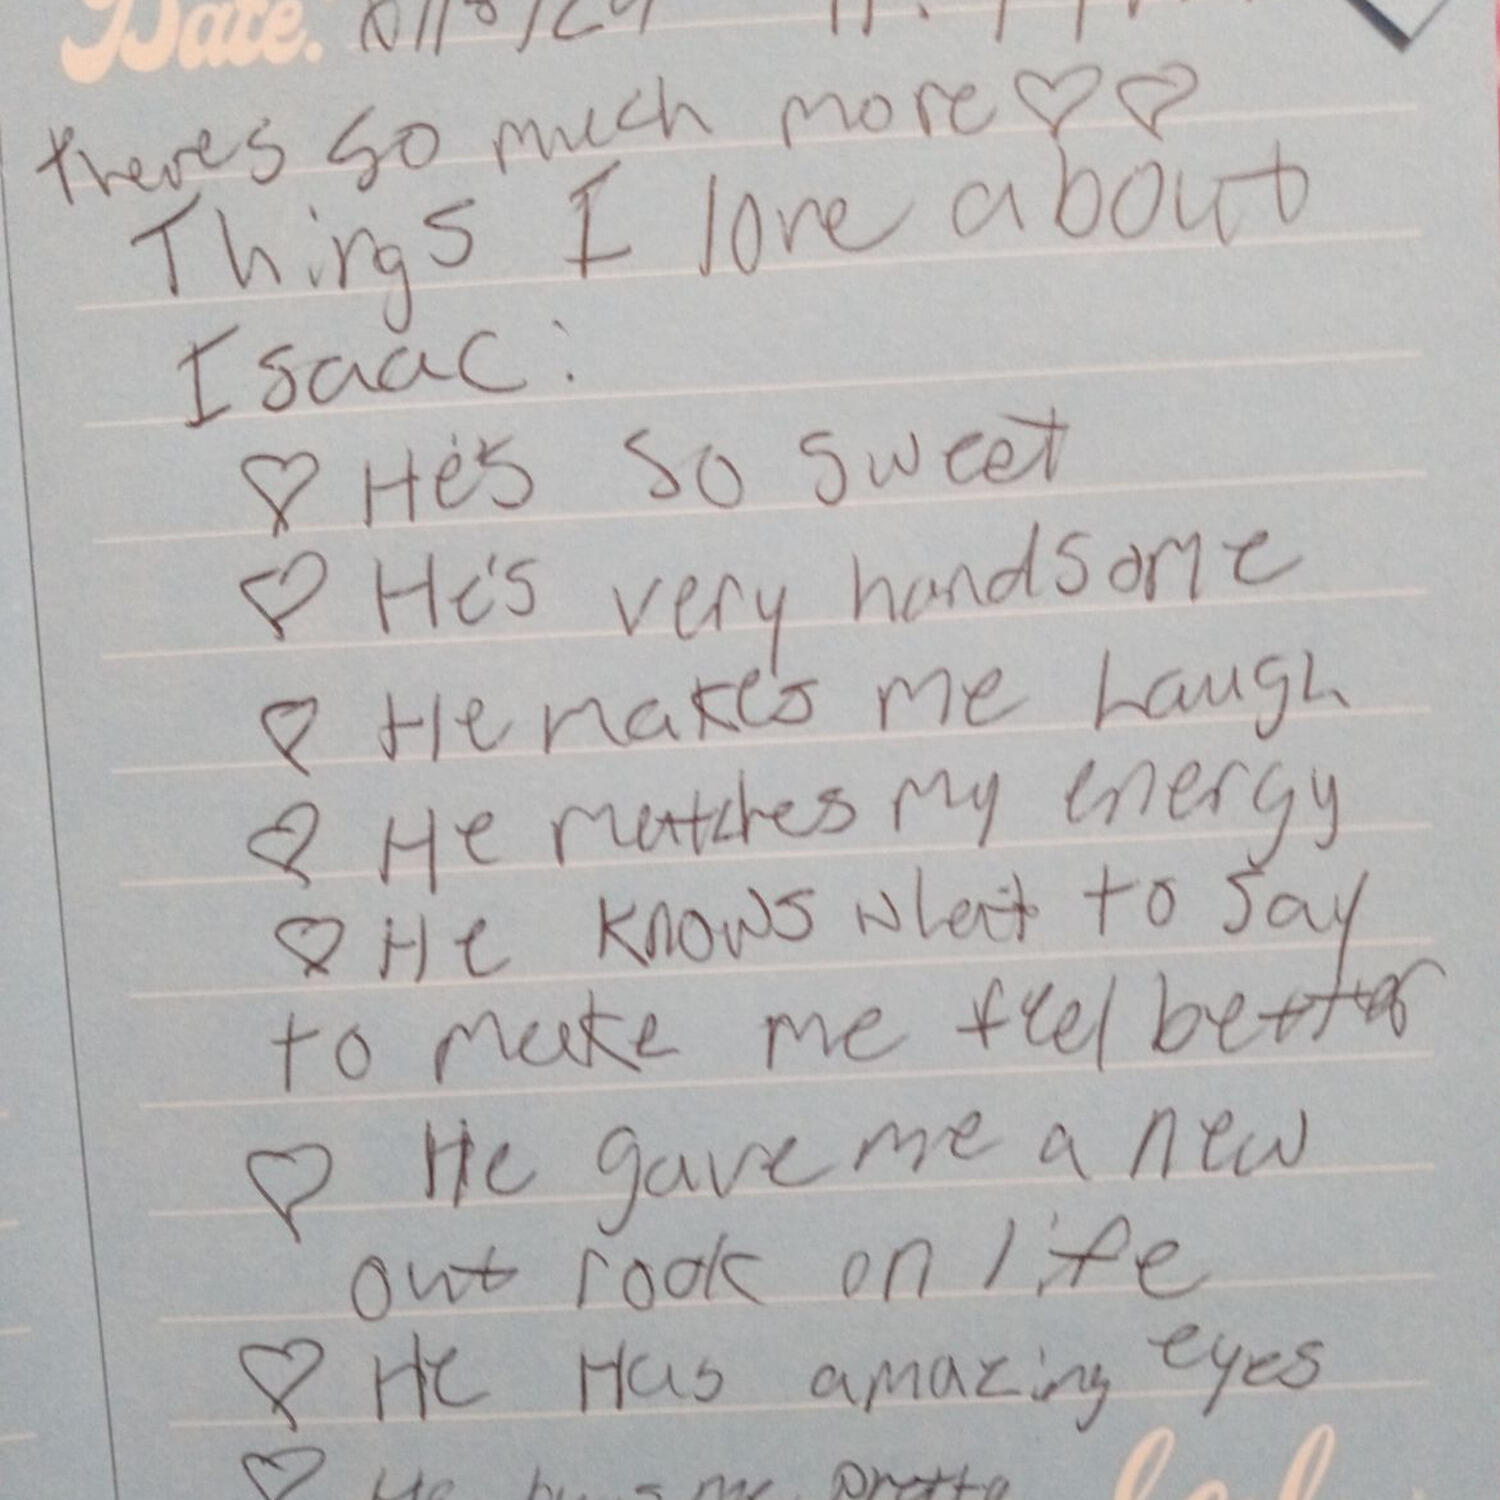 Date:
theres so much more♡♡
Things I love about
Isaac:
♡ He's so sweet
♡ He's very handsome
♡ He makes me Laugh
♡ He matches my energy
♡ He knows what to say
to make me feel better
♡ He gave me a new
out rook on life
♡ He Has amazing eyes
♡ He buys me pretty